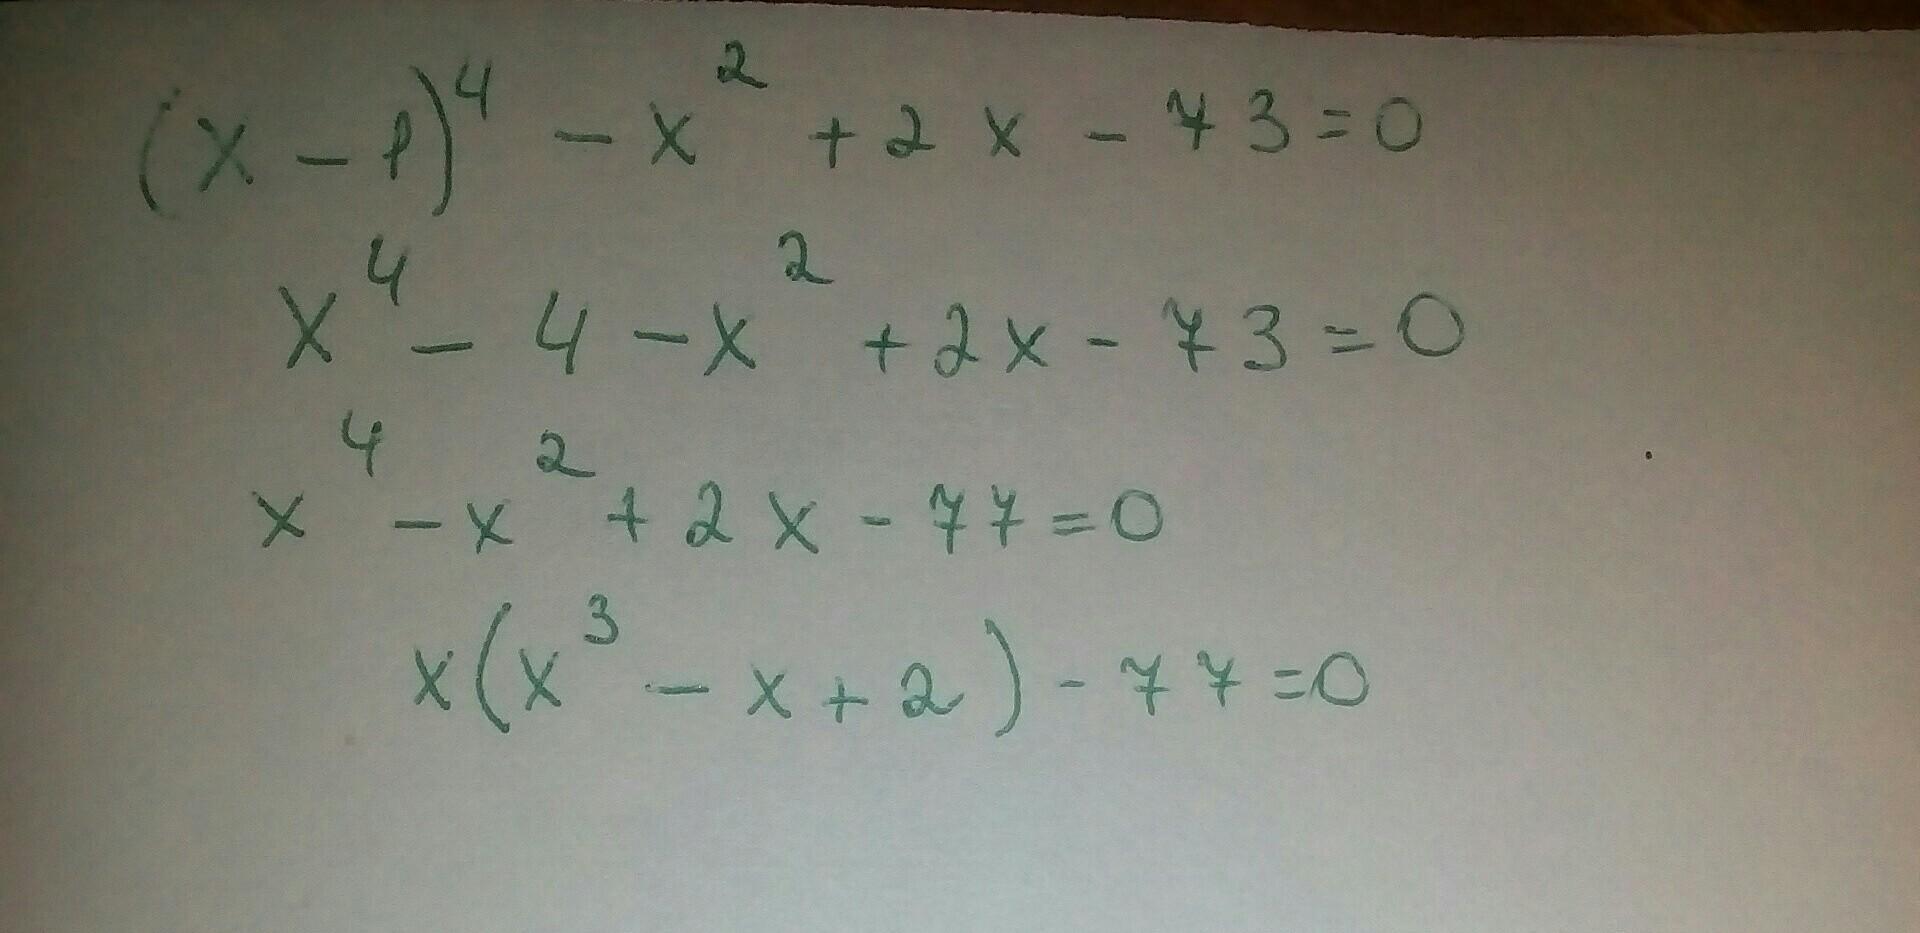 (x - 1)⁴ - x² + 2x - 73 = 0
x⁴ - 4 - x² + 2x - 73 = 0
x⁴ - x² + 2x - 77 = 0
x(x³ - x + 2) - 77 = 0